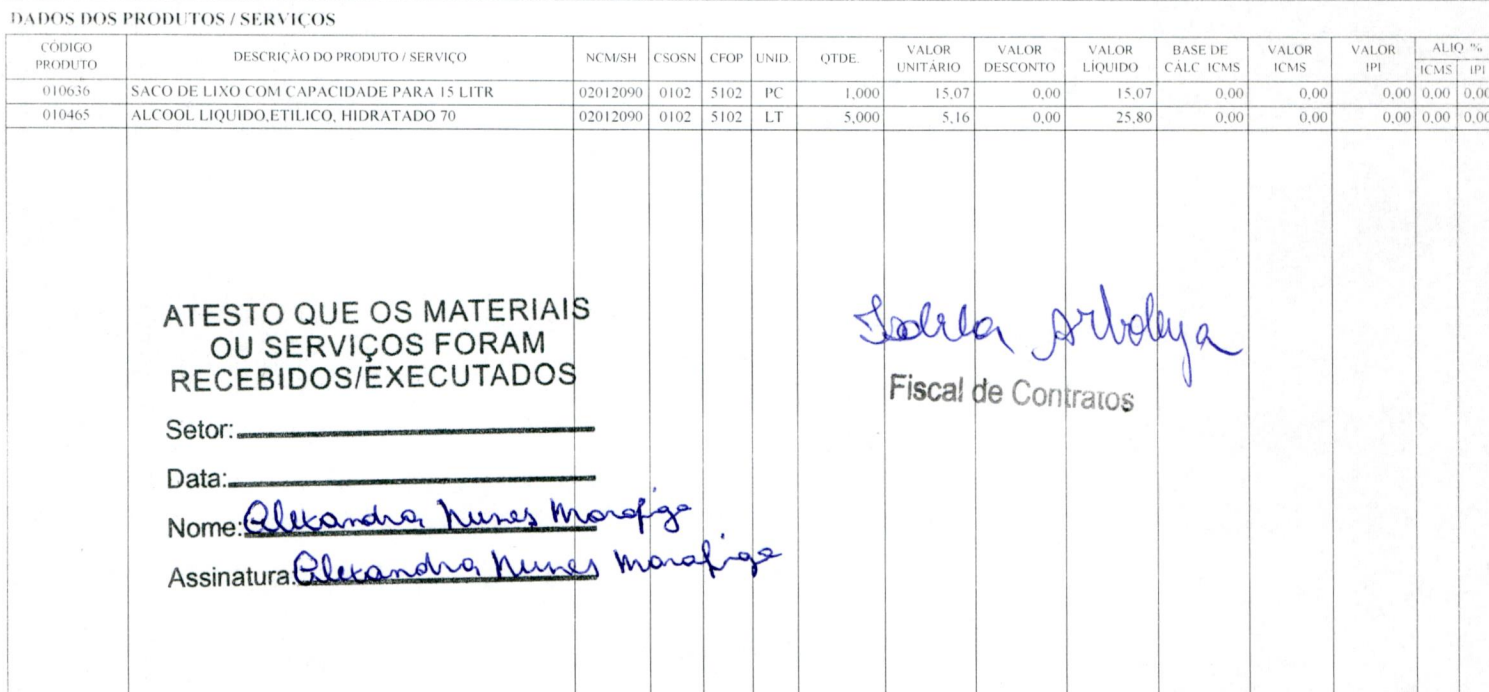 DADOS DOS PRODUTOS / SERVIÇOS
CÓDIGO PRODUTO DESCRIÇÃO DO PRODUTO / SERVIÇO NCM/SH CSOSN CFOP UNID. QTDE. VALOR UNITÁRIO VALOR DESCONTO VALOR LÍQUIDO BASE DE CÁLC ICMS VALOR ICMS VALOR IPI ALIQ % ICMS IPI
010636 SACO DE LIXO COM CAPACIDADE PARA 15 LITR 02012090 0102 5102 PC 1,000 15,07 0,00 15,07 0,00 0,00 0,00 0,00 0,00
010465 ALCOOL LIQUIDO,ETILICO, HIDRATADO 70 02012090 0102 5102 LT 5,000 5,16 0,00 25,80 0,00 0,00 0,00 0,00 0,00
ATESTO QUE OS MATERIAIS
OU SERVIÇOS FORAM
RECEBIDOS/EXECUTADOS
Setor:
Data:
Nome: Alexandra Nunes Marafiga
Assinatura: Alexandra Nunes Marafiga
Arboleya
Fiscal de Contratos